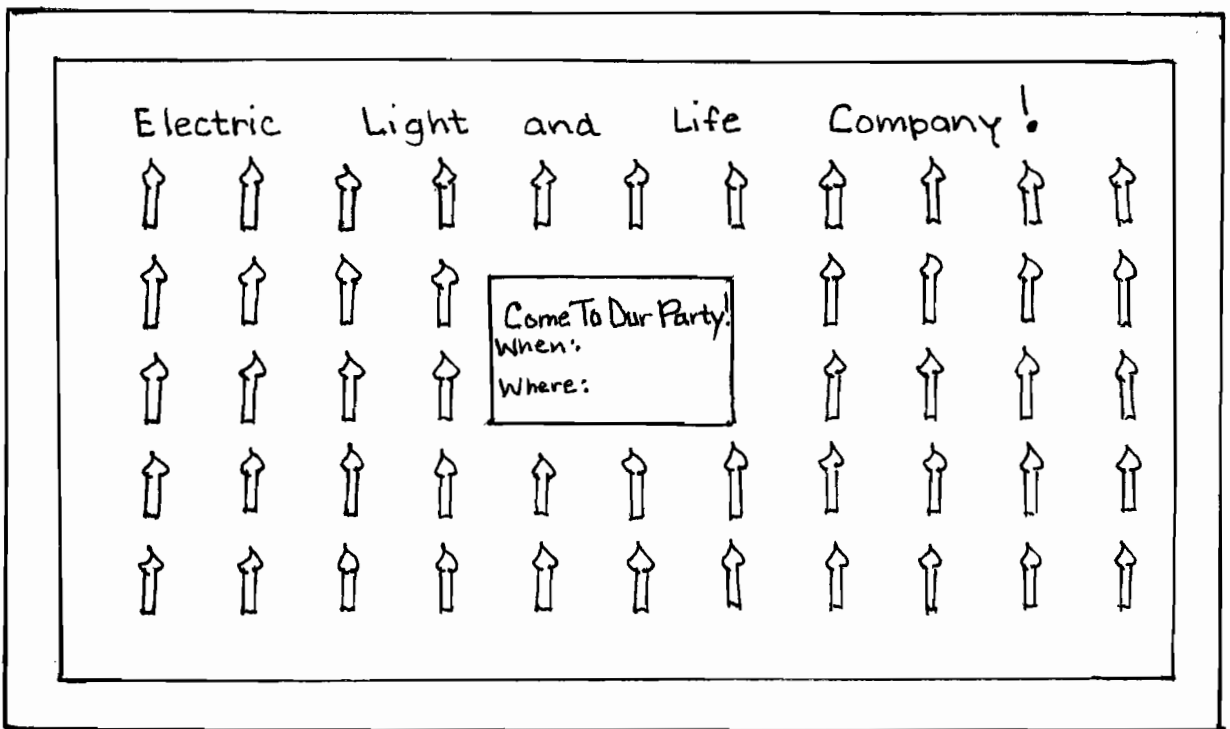 Electric Light and Life Company!
Come To Our Party!
When:
Where: